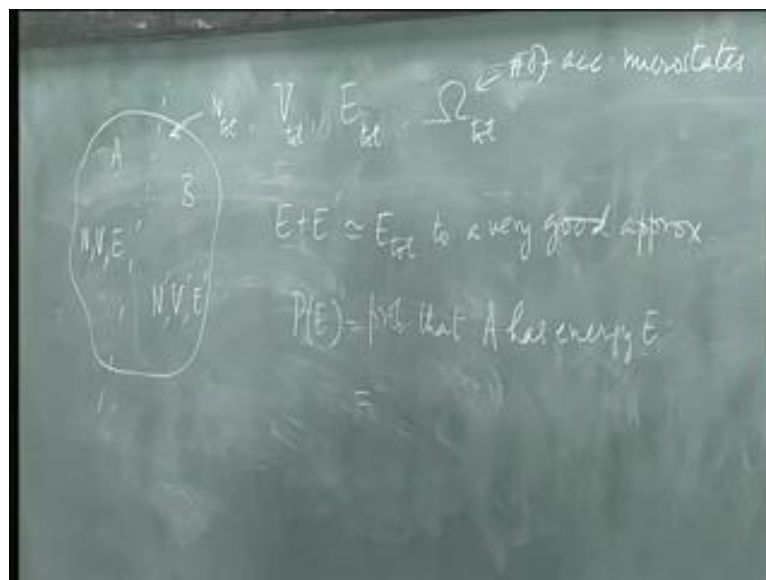 N_tot, V_tot, E_tot, Ω_tot ← # of acc. microstates
A
B
N,V,E,
N',V',E'
E+E' ≃ E_tot to a very good approx
P(E) = prob that A has energy E
=